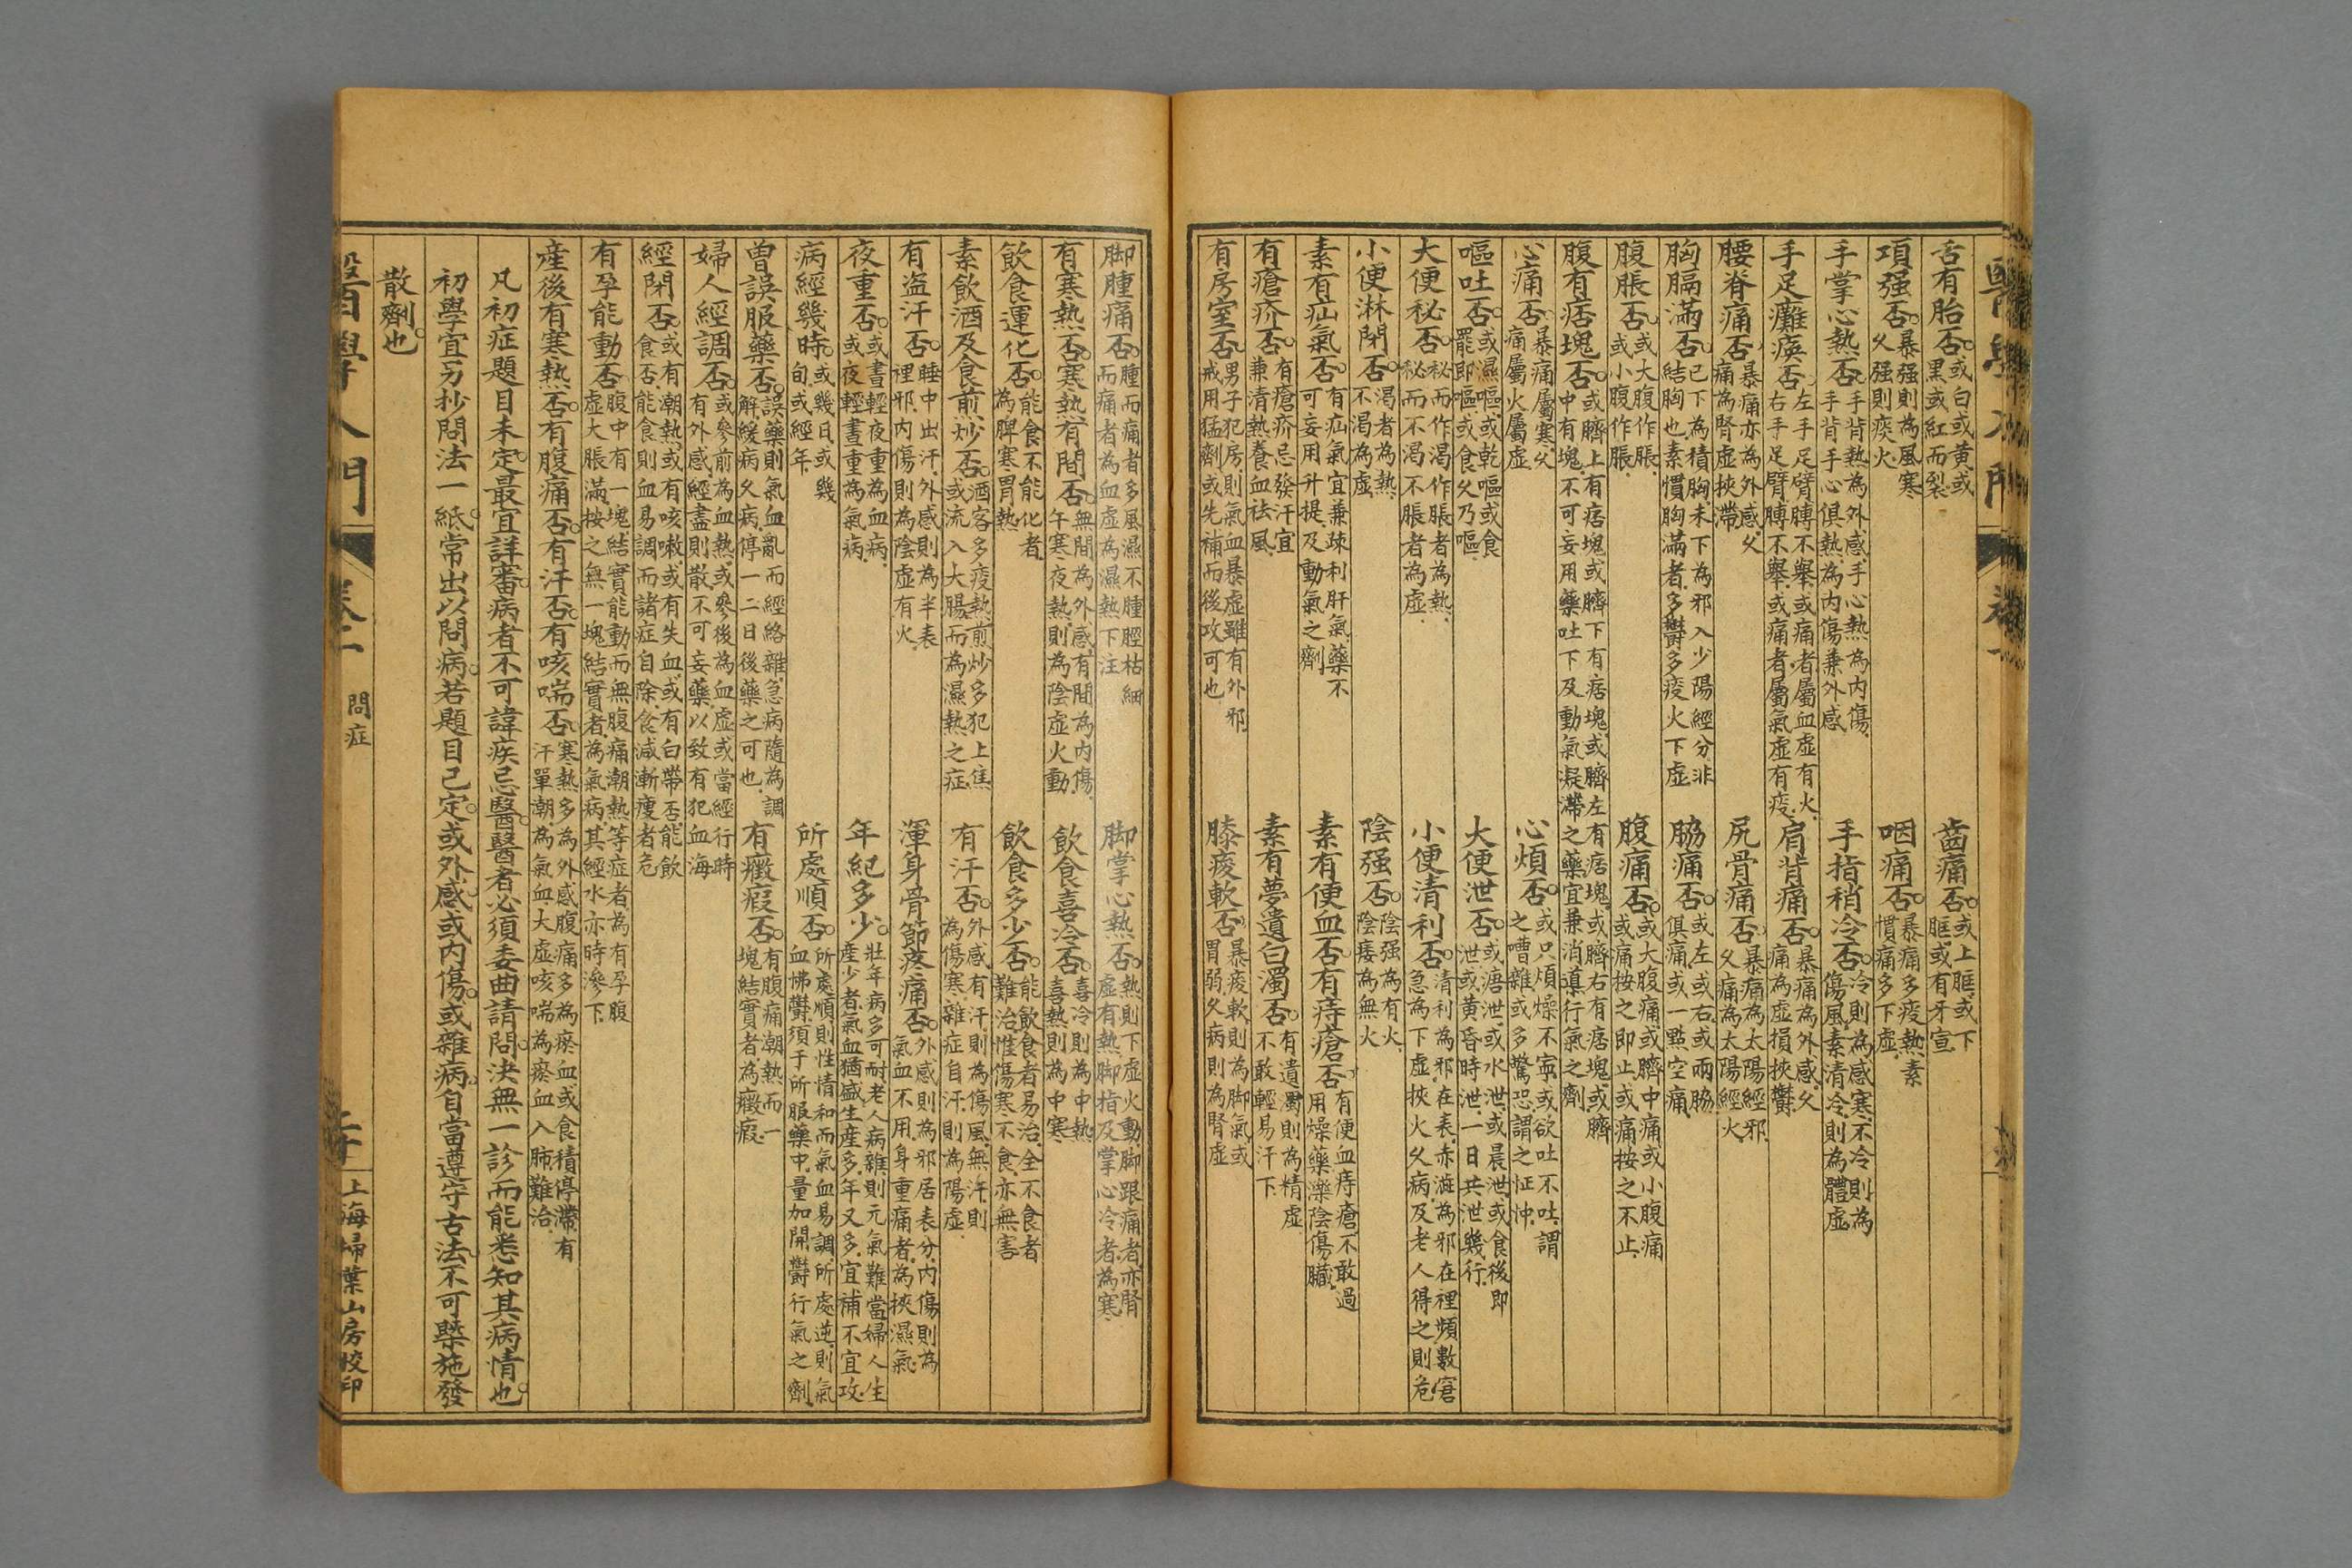 醫學入門
舌有胎否。或白或黃或黑或紅而裂 齒痛否。或上眶或下眶或有牙宣
項强否。暴强則為風寒久强則痰火 咽痛否。暴痛多痰熱素慣痛多下虛
手掌心熱否。手背熱為外感手心熱為內傷手背手心俱熱為內傷兼外感 手指稍冷否。冷則為感寒不冷則為傷風素清冷則為體虛
手足癱瘓否。左手足臂膊不舉或痛者屬血虛有火右手足臂膊不舉或痛者屬氣虛有痰 肩背痛否。暴痛為外感久痛為虛損挾鬱
腰脊痛否。暴痛亦為外感久痛為腎虛挾滯 尻骨痛否。暴痛為太陽經邪久痛為太陽經火
胸膈滿否。已下為積胸未下為邪入少陽經分非結胸也素慣胸滿者多鬱多痰火下虛 脇痛否。或左或右或兩脇俱痛或一點空痛
腹脹否。或大腹作脹或小腹作脹 腹痛否。或大腹痛或臍中痛或小腹痛或痛按之即止或痛按之不止
腹有痞塊否。或臍上有痞塊或臍下有痞塊或臍左有痞塊或臍右有痞塊或臍中有塊不可妄用藥吐下及動氣凝滯之藥宜兼消導行氣之劑
心痛否。暴痛屬寒久痛屬火屬虛 心煩否。或只煩燥不寧或欲吐不吐謂之嘈雜或多驚恐謂之怔忡
嘔吐否。或濕嘔或乾嘔或食罷即嘔或食久乃嘔 大便泄否。或溏泄或水泄或晨泄或食後即泄或黃昏時泄一日共泄幾行
大便秘否。秘而作渴作脹者為熱秘而不渴不脹者為虛 小便清利否。清利為邪在表赤澁為邪在裡頻數窘急為下虛挾火久病及老人得之則危
小便淋閉否。渴者為熱不渴為虛 陰强否。陰强為有火陰痿為無火
素有疝氣否。有疝氣宜兼疎利肝氣藥不可妄用升提及動氣之劑 素有便血否有痔瘡否。有便血痔瘡不敢過用燥藥爍陰傷臟
有瘡疥否。有瘡疥忌發汗宜兼清熱養血祛風 素有夢遺白濁否。有遺濁則為精虛不敢輕易汗下
有房室否。男子犯房則氣血暴虛雖有外邪戒用猛劑或先補而後攻可也 膝痠軟否。暴痠軟則為脚氣或胃弱久病則為腎虛
脚腫痛否。腫而痛者多風濕不腫脛枯細而痛者為血虛為濕熱下注 脚掌心熱否。熱則下虛火動脚跟痛者亦腎虛有熱脚指及掌心冷者為寒
有寒熱否。寒熱有間否。無間為外感有間為內傷午寒夜熱則為陰虛火動 飲食喜冷否。喜冷則為中熱喜熱則為中寒
飲食運化否。能食不能化者為脾寒胃熱 飲食多少否。能飲食者易治全不食者難治惟傷寒不食亦無害
素飲酒及食煎炒否。酒客多痰熱煎炒多犯上焦或流入大腸而為濕熱之症 有汗否。外感有汗則為傷風無汗則為傷寒雜症自汗則為陽虛
有盜汗否。睡中出汗外感則為半表裡邪內傷則為陰虛有火 渾身骨節疼痛否。外感則為邪居表分內傷則為氣血不用身重痛者為挾濕氣
夜重否。或晝輕夜重為血病或夜輕晝重為氣病 年紀多少。壯年病多可耐老人病雜則元氣難當婦人生產少者氣血猶盛生產多年又多宜補不宜攻
病經幾時。或幾日或幾旬或經年 所處順否。所處順則性情和而氣血易調所處逆則氣血怫鬱須于所服藥中量加開鬱行氣之劑
曾誤服藥否。誤藥則氣血亂而經絡雜急病隨為調解緩病久病停一二日後藥之可也 有癥瘕否。有腹痛潮熱而一塊結實者為癥瘕
婦人經調否。或參前為血熱或參後為血虛或當經行時有外感經盡則散不可妄藥以致有犯血海
經閉否。或有潮熱或有咳嗽或有失血或有白帶否能飲食否能食則血易調而諸症自除食減漸瘦者危
有孕能動否。腹中有一塊結實能動而無腹痛潮熱等症者為有孕腹虛大脹滿按之無一塊結實者為氣病其經水亦時滲下
產後有寒熱否。有腹痛否。有汗否。有咳喘否。寒熱多為外感腹痛多為瘀血或食積停滯有汗單潮為氣血大虛咳喘為瘀血入肺難治
凡初症題目未定。最宜詳審。病者不可諱疾忌醫。醫者必須委曲請問。決無一診而能悉知其病情也。
初學宜另抄問法一紙。常出以問病。若題目已定。或外感。或內傷。或雜病。自當遵守古法。不可槩施發
散劑也
醫學入門
卷二
問症
上海埽葉山房校印